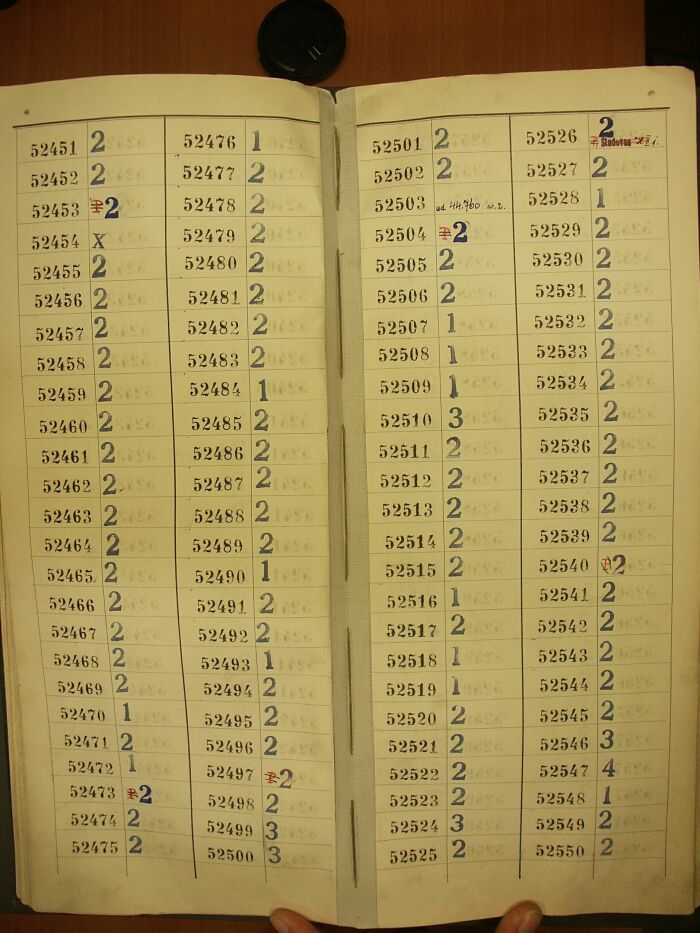 52451 2
52452 2
52453 2
52454 X
52455 2
52456 2
52457 2
52458 2
52459 2
52460 2
52461 2
52462 2
52463 2
52464 2
52465 2
52466 2
52467 2
52468 2
52469 2
52470 1
52471 2
52472 1
52473 2
52474 2
52475 2
52476 1
52477 2
52478 2
52479 2
52480 2
52481 2
52482 2
52483 2
52484 1
52485 2
52486 2
52487 2
52488 2
52489 2
52490 1
52491 2
52492 2
52493 1
52494 2
52495 2
52496 2
52497 2
52498 2
52499 3
52500 3
52501 2
52502 2
52503 od 44.760
52504 2
52505 2
52506 2
52507 1
52508 1
52509 1
52510 3
52511 2
52512 2
52513 2
52514 2
52515 2
52516 1
52517 2
52518 1
52519 1
52520 2
52521 2
52522 2
52523 2
52524 3
52525 2
52526 2
Studovna
52527 2
52528 1
52529 2
52530 2
52531 2
52532 2
52533 2
52534 2
52535 2
52536 2
52537 2
52538 2
52539 2
52540 2
52541 2
52542 2
52543 2
52544 2
52545 2
52546 3
52547 4
52548 1
52549 2
52550 2